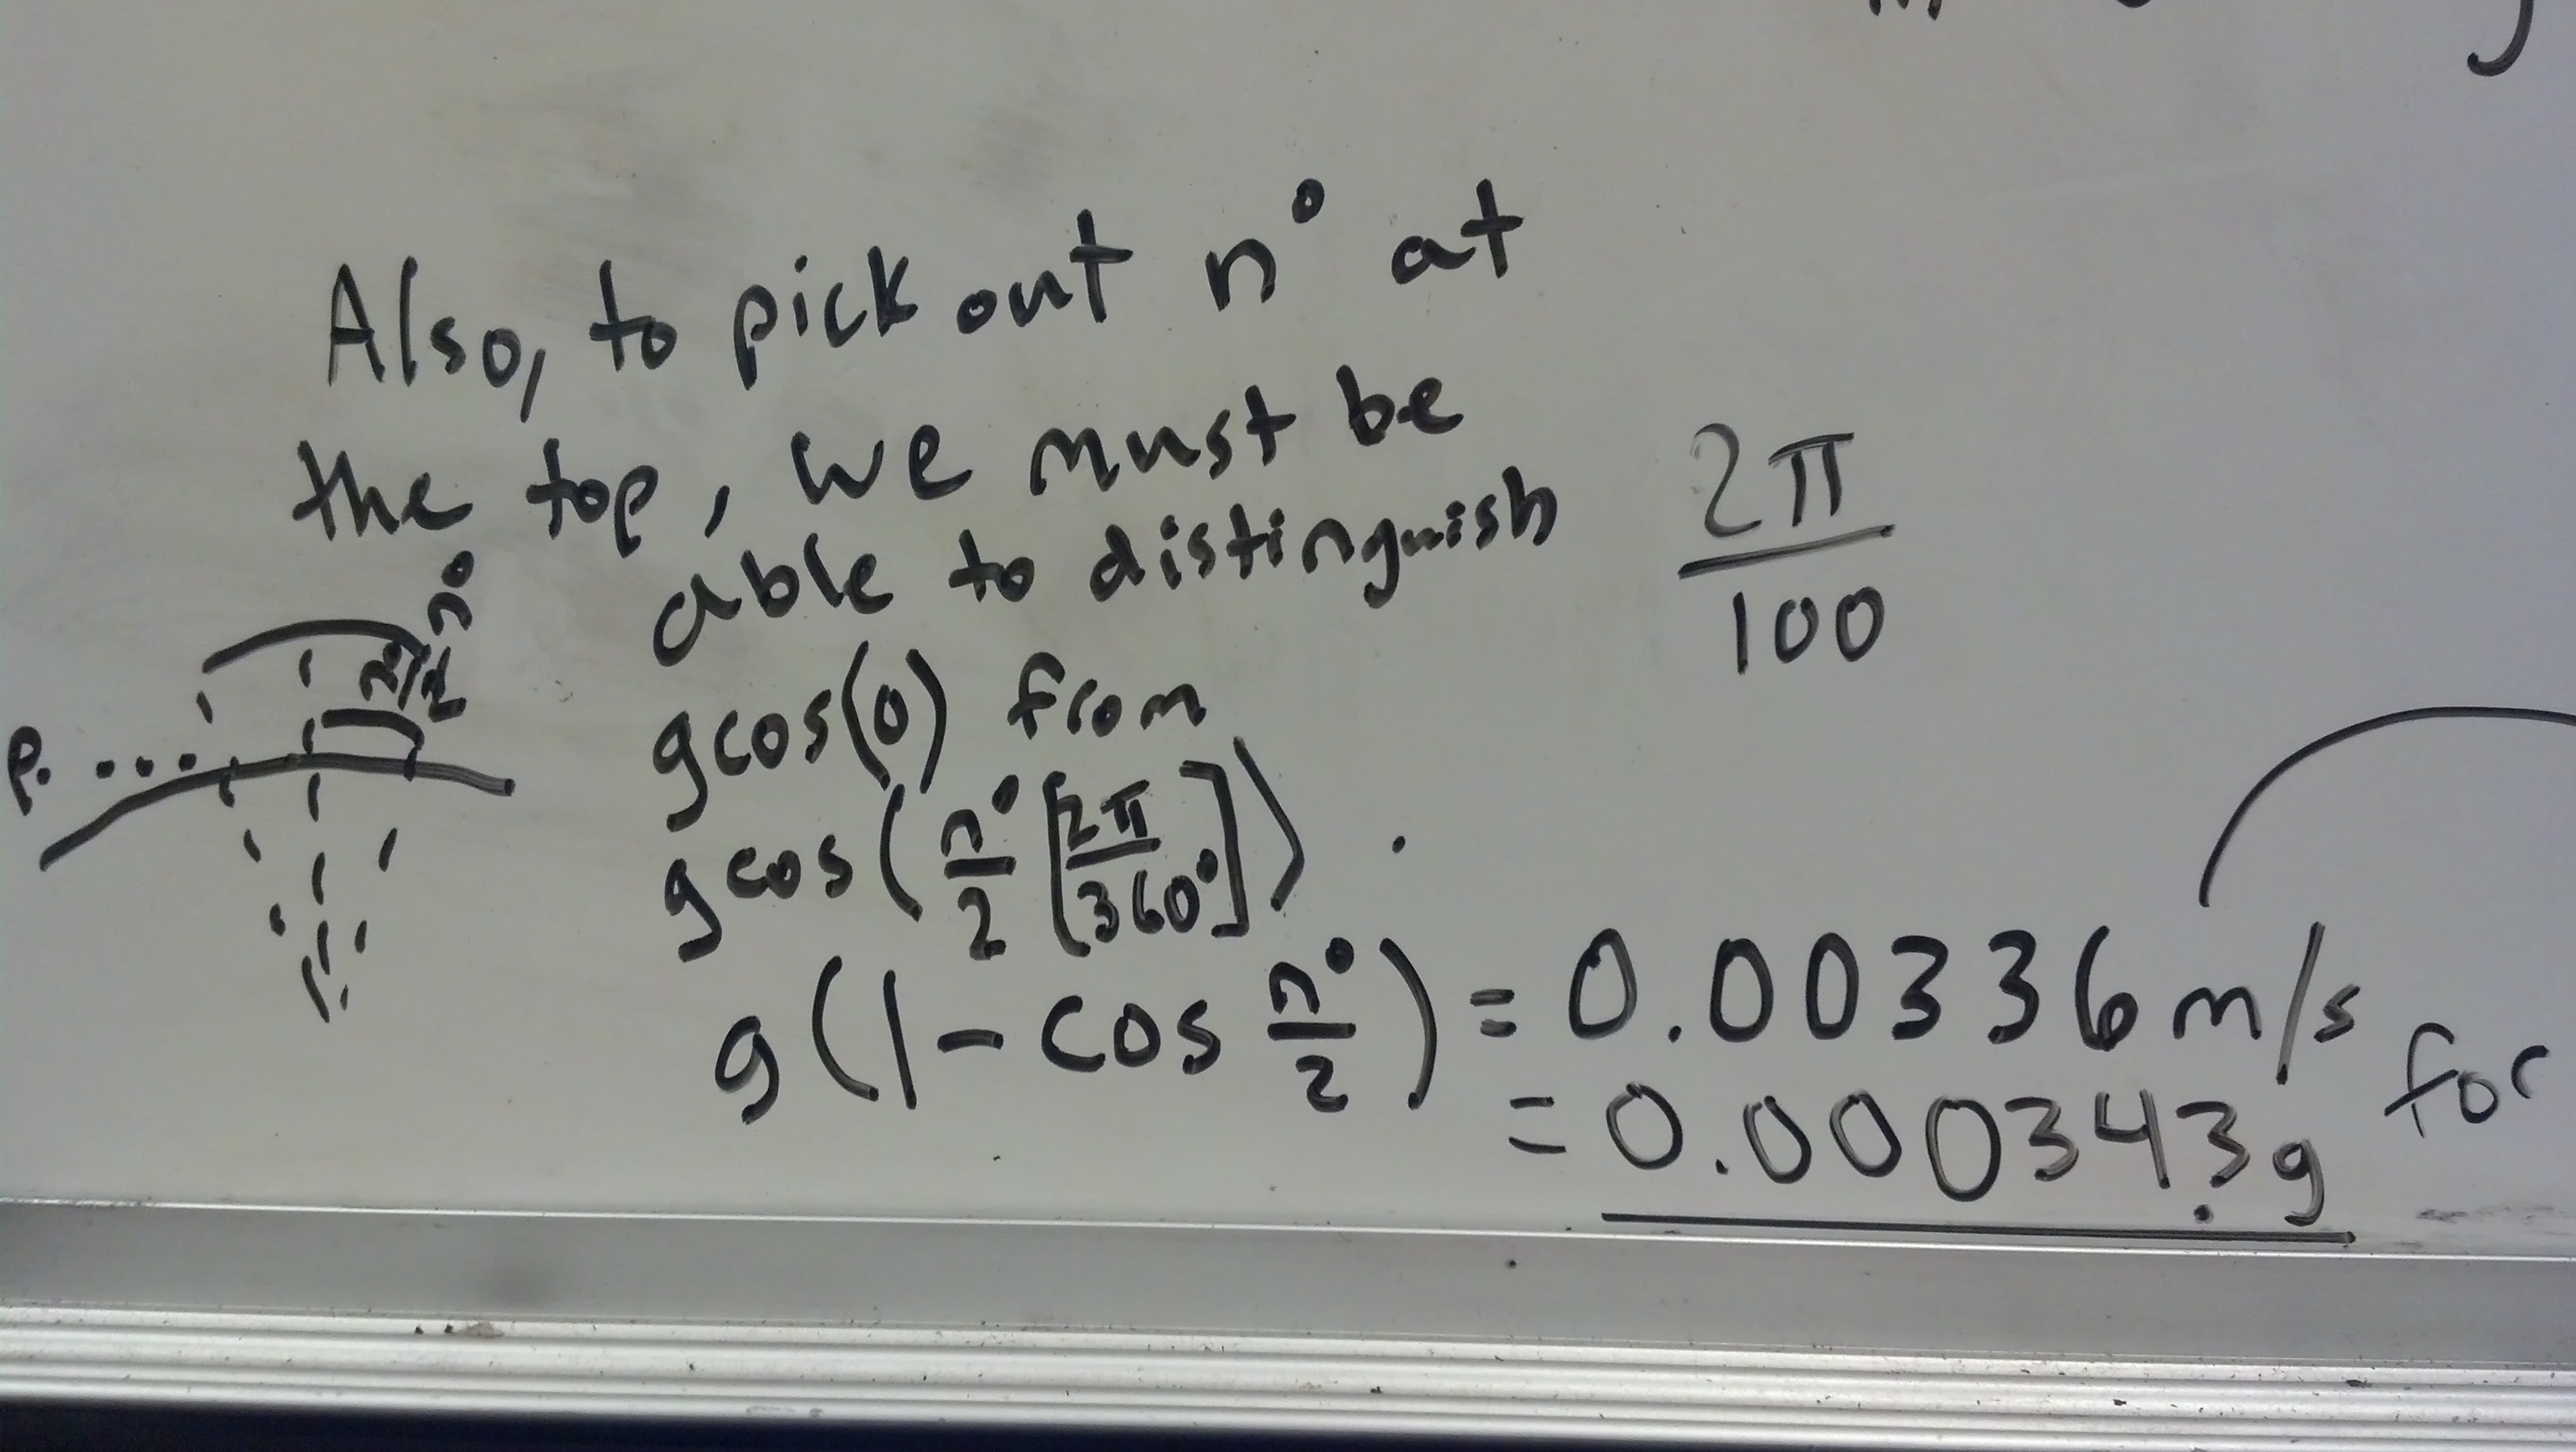 Also, to pick out n° at
the top, we must be
able to distinguish
gcos(0) from
gcos(n°/2 [2π/360°]).
g(1 - cos n°/2) = 0.00336 m/s for
= 0.000343g
2π/100
n°
n/2
p. ....